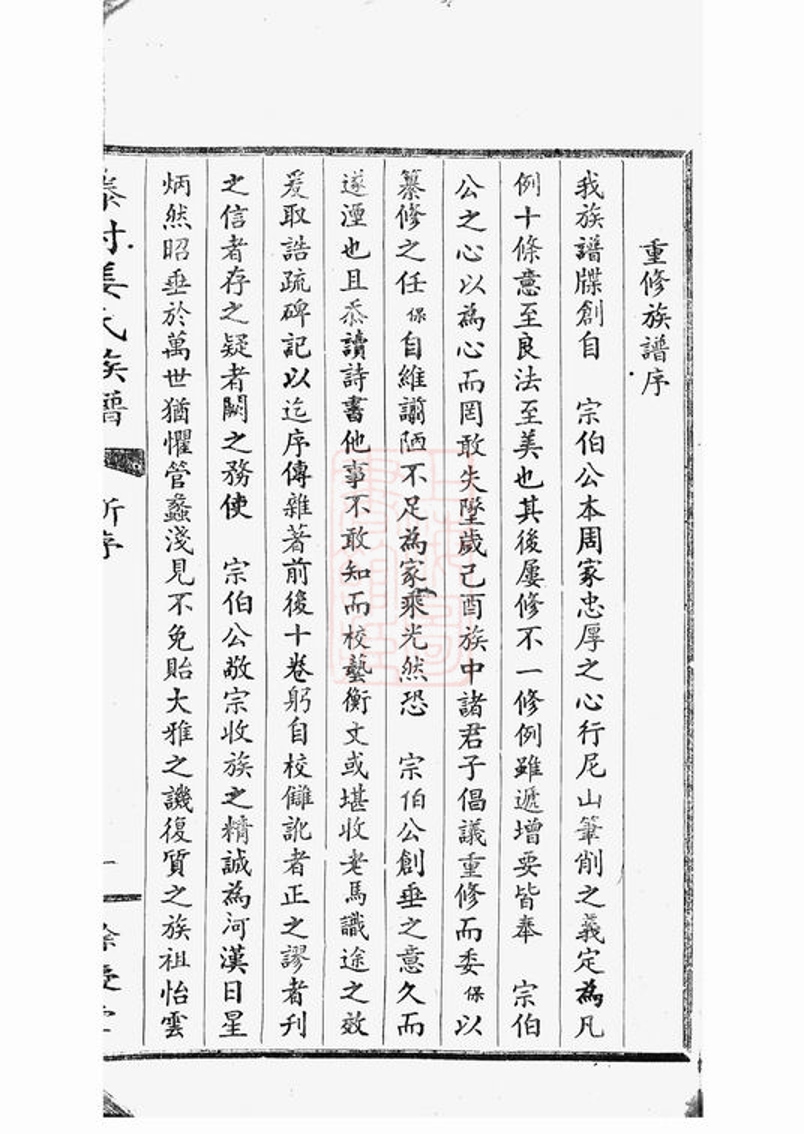 重修族譜序
我族譜牒創自　宗伯公本周家忠厚之心行尼山筆削之義定為凡
例十條意至良法至美也其後屢修不一修例雖遞增要皆奉　宗伯
公之心以為心而罔敢失墜歲己酉族中諸君子倡議重修而委保以
纂修之任保自維謭陋不足為家乘光然恐　宗伯公創垂之意久而
遂湮也且忝讀詩書他事不敢知而校藝衡文或堪收老馬識途之效
爰取誥疏碑記以迄序傳雜著前後十卷躬自校讎訛者正之謬者刊
之信者存之疑者闕之務使　宗伯公敬宗收族之精誠為河漢日星
炳然昭垂於萬世猶懼管蠡淺見不免貽大雅之譏復質之族祖怡雲
姜氏族譜　新序